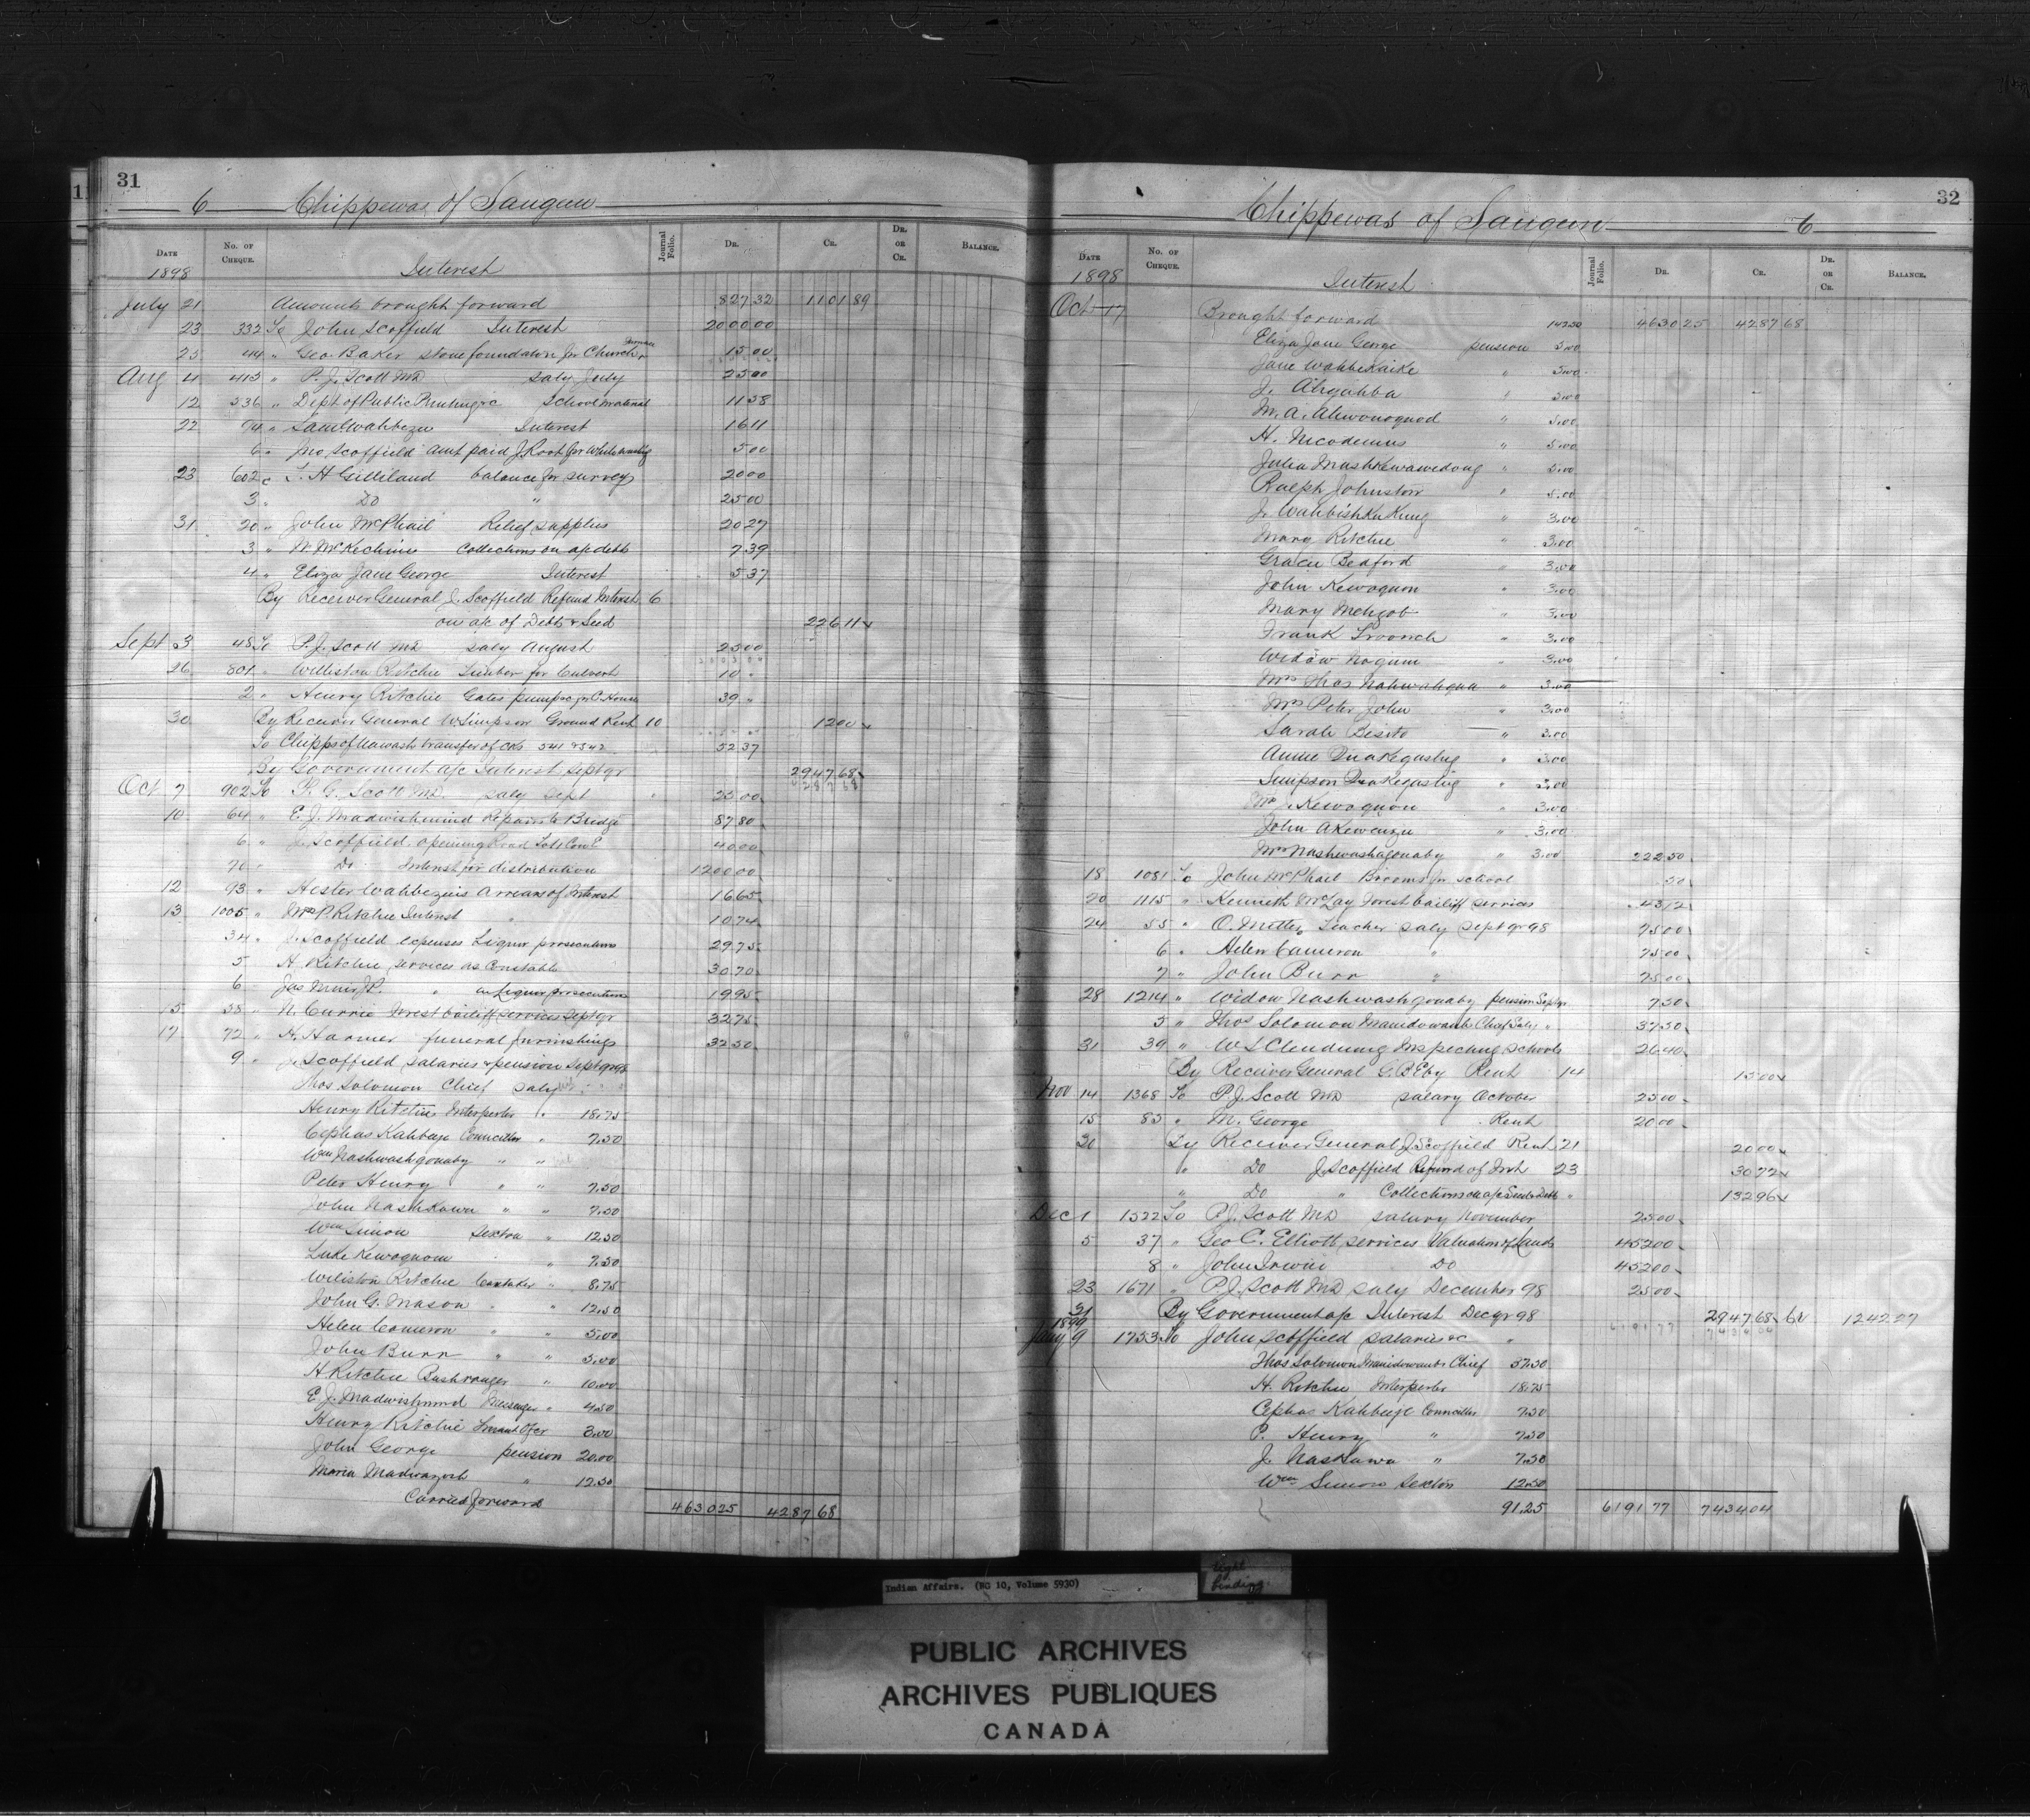 31
6 Chippewas of Saugeen
DATE No. OF CHEQUE. Journal Folio. DR. CR. DR. OR CR. BALANCE.
1898 Interest
July 21 Amounts brought forward 827 32 1101 89
23 332 To John Scoffield Interest 2000 00
25 414 " Geo. Baker stone foundation for Church 15 00
Aug 4 415 " P. J. Scott MD saly July 25 00
12 536 " Dept of Public Printing &c School material 11 58
22 74 " Saml Wahbezee Interest 16 11
6 " Jno Scoffield amt paid J. Root for Whitewashing 5 00
23 602 " L. H Gilliland balance for survey 20 00
3 " Do " 25 00
31 20 " John McPhail Relief supplies 20 27
3 " N. McKechnie Collections on a/c debts 7 39
4 " Eliza Jane George Interest 5 37
By Receiver General J. Scoffield Refund Interest 6
on a/c of Debts & Seed 226 11
Sept 3 48 To P. J. Scott MD saly August 25 00
26 801 " Williston Ritchie Timber for Culvert 10 "
2 " Henry Ritchie Gates pump &c for C. House 39 "
30 By Receiver General W. Simpson Ground Rent 10 12 00
To Chipps of Nawash transfer of cks 541 & 542 52 37
By Government a/c Interest Septqr 2947 68
Oct 7 902 To P. G. Scott MD. saly Sept 25 00
10 64 " E. J. Madwishmind Repairs to Bridge 87 80
6 " J. Scoffield opening Road 40 00
70 " Do Interest for distribution 1200 00
12 93 " Hester Wahbezuis Arrears of Interest 16 65
13 1005 " Mrs P. Ritchie Interest " 10 74
34 " J. Scoffield expenses Liquor prosecutions 29 75
5 " H Ritchie services as Constable 30 70
6 " Jas Muir J.P. " in Liquor prosecutions 19 95
15 38 " N. Currie Forest bailiff services Septqr 32 75
17 72 " H. Harmer funeral furnishings 32 50
9 " J. Scoffield salaries & pension Septqr 98
Thos Solomon Chief saly
Henry Ritchie Interpreter " 18.75
Cephas Kahbeije Councillor " 7.50
Wm Nashwashgonaby " "
Peter Henry " " 7.50
John Nashkawa " " 7.50
Wm Simon Sexton " 12.50
Luke Kewoquom " 7.50
Wiliston Ritchie Caretaker " 8.75
John G. Mason " " 12.50
Helen Cameron " " 5.00
John Burr " " 5.00
H Ritchie Bushranger " 10.00
E. J. Madwishmind Messenger " 4.50
Henry Ritchie Truant Ofcr 3.00
John George pension 20.00
Maria Madwayosh " 12.50
Carried forward 4630 25 4287 68
32
Chippewas of Saugeen 6
DATE No. OF CHEQUE. Journal Folio. DR. CR. DR. OR CR. BALANCE.
1898 Interest
Oct 17 Brought forward 142.50 4630 25 4287 68
Eliza Jane George pension 5.00
Jane Wahbekaike " 5.00
J. Ahyahba " 5.00
M. A. Ahwonoquod " 5.00
H. Nicodemus " 5.00
Julia Mushkewawedong " 5.00
Ralph Johnston " 5.00
J. Wahbishkukung " 3.00
Mary Ritchie " 3.00
Grace Bedford " 3.00
John Kewoquom " 3.00
Mary Mehgob " 3.00
Frank Troonch " 3.00
Widow Nogum " 3.00
Mrs Thos Nahwahqua " 3.00
Mrs Peter John " 3.00
Sarah Besito " 3.00
Annie Quakegustig " 3.00
Simpson Quakegastig " 3.00
Mrs J. Kewoquom " 3.00
John Akewenzie " 3.00
Mrs Nashwashagonaby " 3.00 222 50
18 1081 To John McPhail Brooms for school 50
20 1115 " Kenneth McLay Forest bailiff services 43 12
24 55 " O. Mitten Teacher saly Septqr 98 75 00
6 " Helen Cameron " 75 00
7 " John Burr " 75 00
28 1214 " Widow Nashwashgonaby pension Septqr 7 50
5 " Thos Solomon Manidowaub Chief Saly " 37 50
31 39 " W S Clendening Inspecting schools 26 40
By Receiver General G. B Eby Rent 14 15 00
Nov 14 1368 To P. J. Scott MD salary October 25 00
15 83 " M. George Rent 20 00
30 By Receiver General J. Scoffield Rent 21 20 00
" Do J. Scoffield Refund of Int 23 30 72
" Do " Collections on a/c Seed & Debts " 132 96
Dec 1 1522 To P. J. Scott MD salary November 25 00
5 37 " Geo C. Elliott services Valuation of Lands 452 00
8 " John Irwin Do 452 00
23 1671 " P. J. Scott MD saly December 98 25 00
31 By Government a/c Interest Decqr 98 2947 68 Cr 1242 27
1899
Jany 9 1753 To John Scoffield salaries &c "
Thos Solomon Manidowaub Chief 37.50
H. Ritchie Interpreter 18.75
Cephas Kahbeije Councillor 7.50
P. Henry " 7.50
J. Naskawa " 7.50
Wm Simon Sexton 12.50
91.25 6191 77 7434 04
Indian Affairs. (RG 10, Volume 5930)
tight binding
PUBLIC ARCHIVES
ARCHIVES PUBLIQUES
CANADA